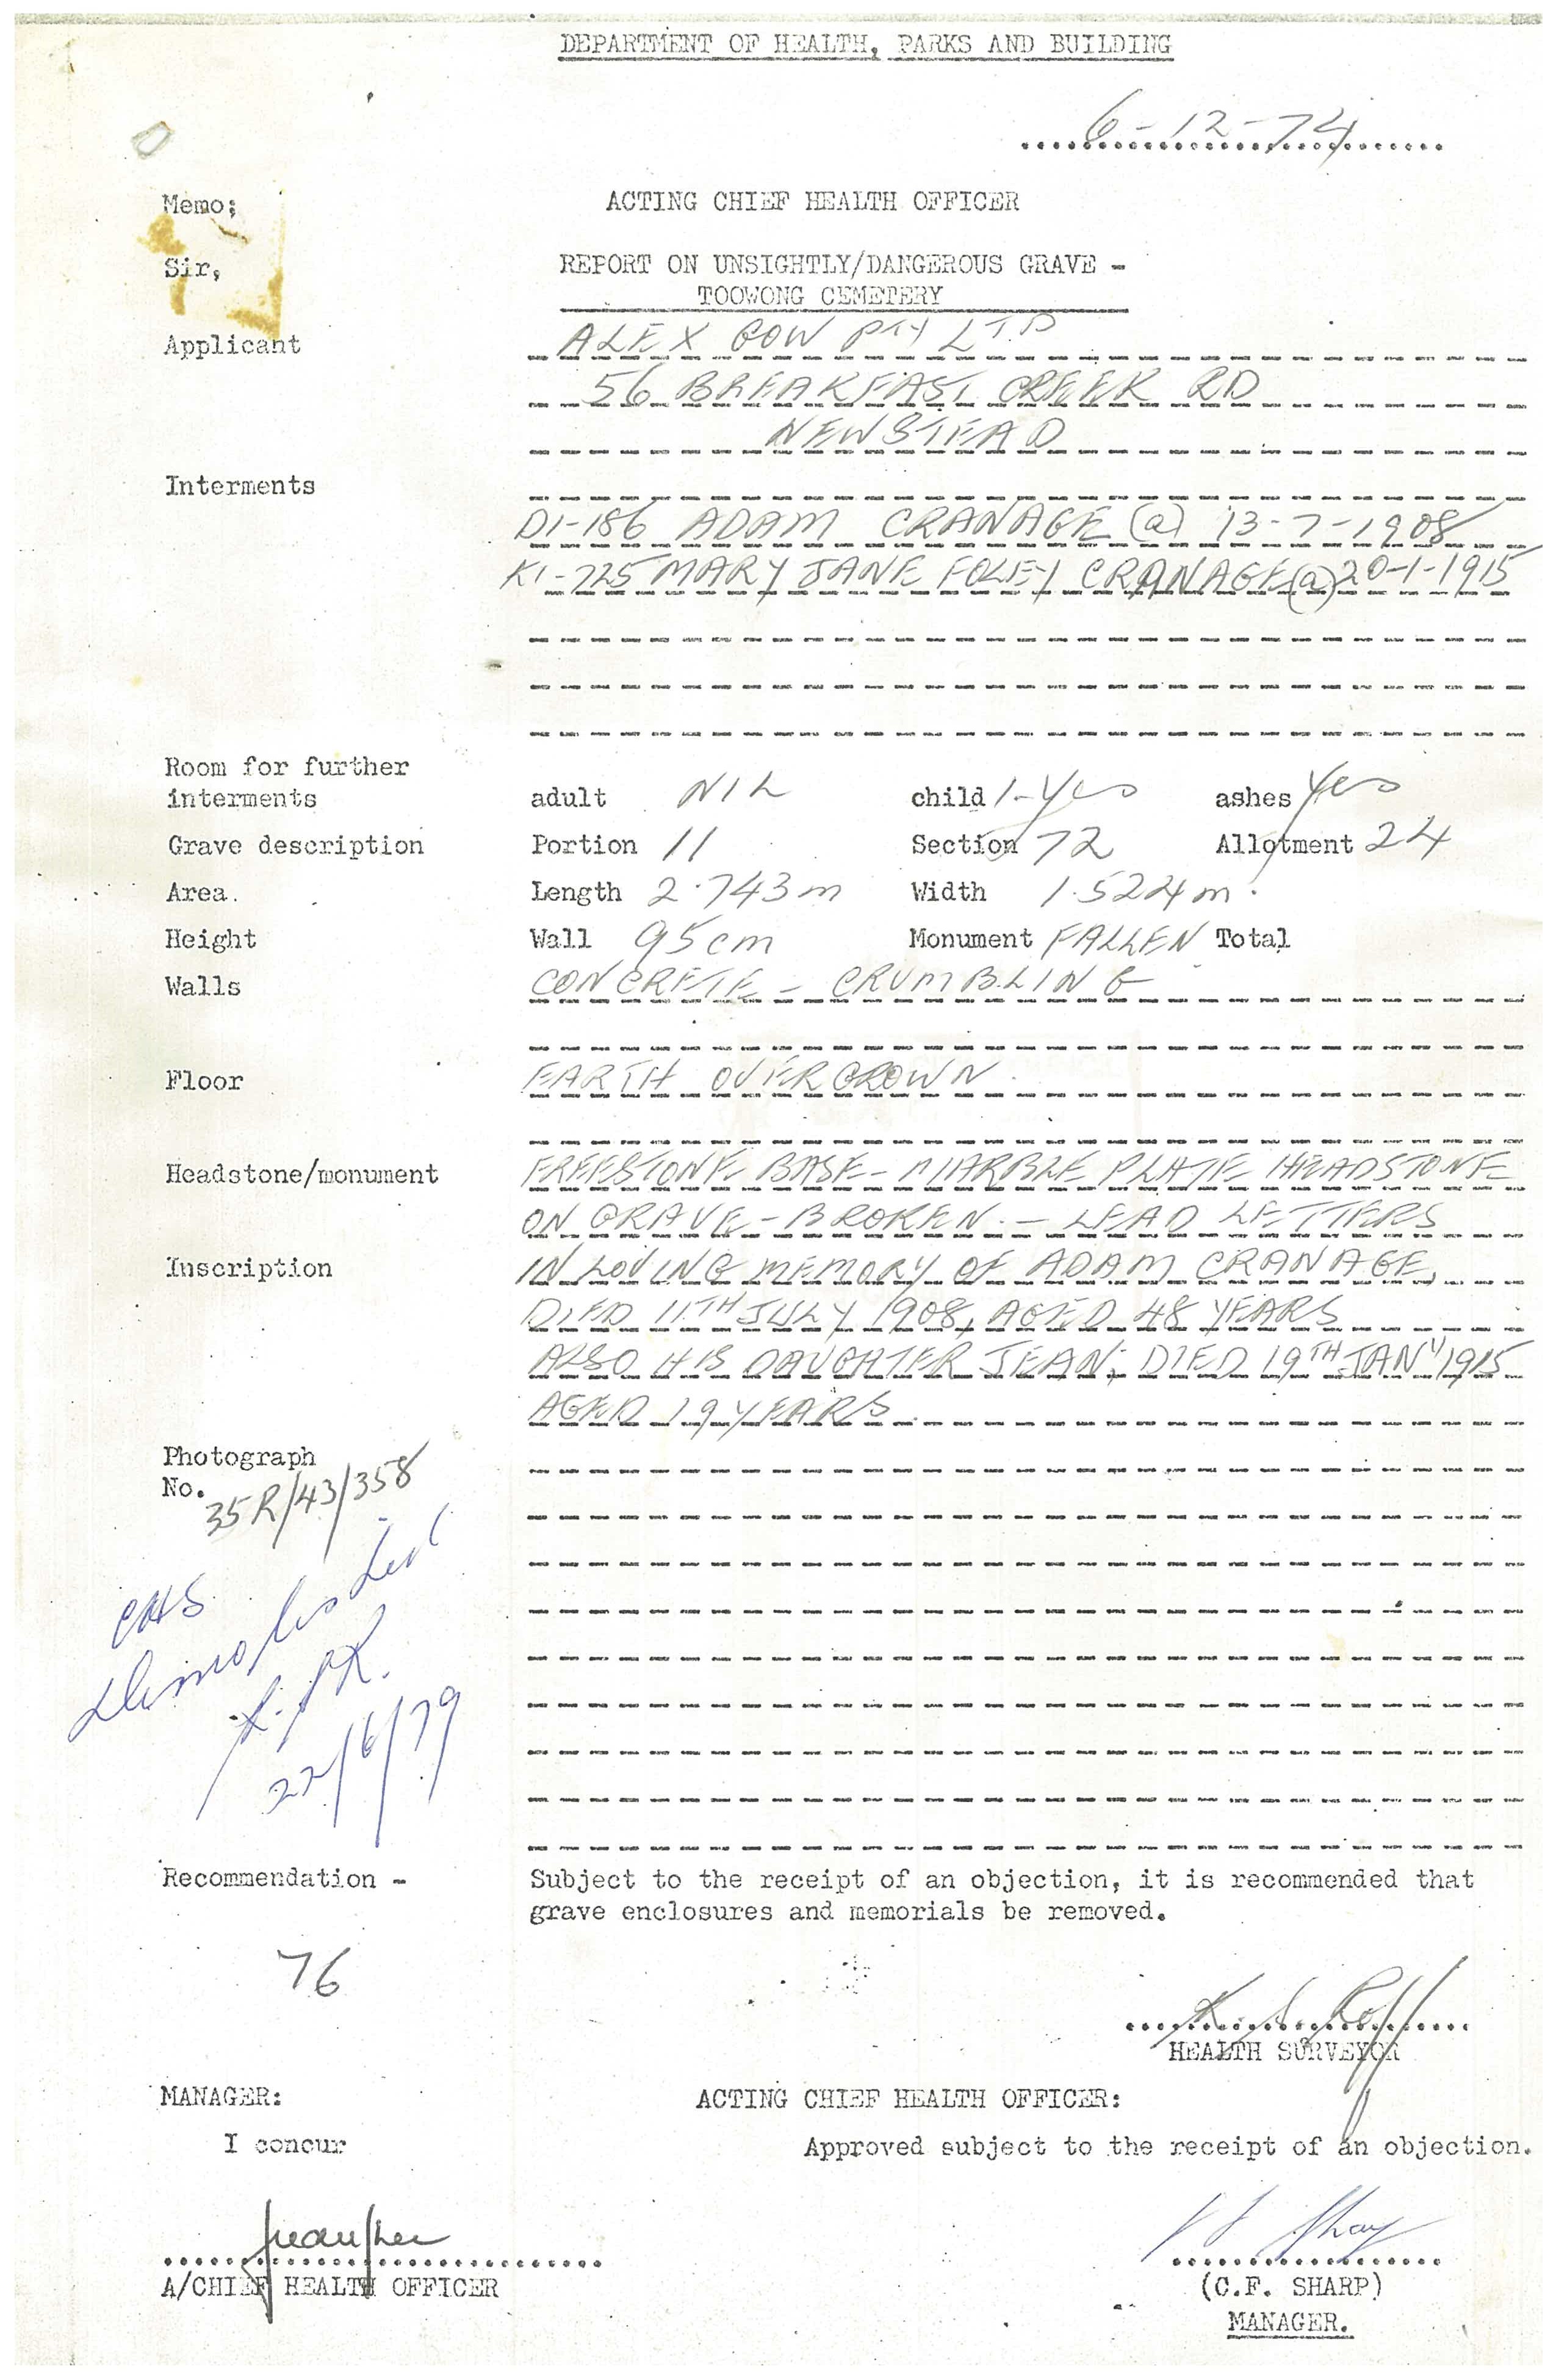 DEPARTMENT OF HEALTH, PARKS AND BUILDING
6-12-74
Memo; ACTING CHIEF HEALTH OFFICER
Sir, REPORT ON UNSIGHTLY/DANGEROUS GRAVE -
TOOWONG CEMETERY
Applicant ALEX GOW PTY LTD
56 BREAKFAST CREEK RD
NEWSTEAD
Interments
D1-186 ADAM CRANAGE (a) 13-7-1908
K1-725 MARY JANE FOLEY CRANAGE (a) 20-1-1915
Room for further
interments adult NIL child 1-Yes ashes Yes
Grave description Portion 11 Section 72 Allotment 24
Area. Length 2.743m Width 1.524m.
Height Wall 95cm Monument FALLEN Total
Walls CONCRETE - CRUMBLING
Floor EARTH OVERGROWN.
Headstone/monument FREESTONE BASE - MARBLE PLATE HEADSTONE
ON GRAVE - BROKEN. - LEAD LETTERS
Inscription IN LOVING MEMORY OF ADAM CRANAGE,
DIED 11TH JULY 1908, AGED 48 YEARS
ALSO HIS DAUGHTER JEAN; DIED 19TH JANY 1915
AGED 19 YEARS.
Photograph
No. 35R/43/358
CHS
Demolished
22/6/79
Recommendation - Subject to the receipt of an objection, it is recommended that
grave enclosures and memorials be removed.
76
HEALTH SURVEYOR
MANAGER: ACTING CHIEF HEALTH OFFICER:
I concur Approved subject to the receipt of an objection.
A/CHIEF HEALTH OFFICER (C.F. SHARP)
MANAGER.